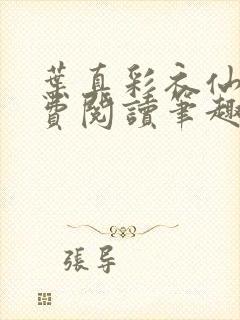 葉真彩衣仙
費閱讀筆趣
張導